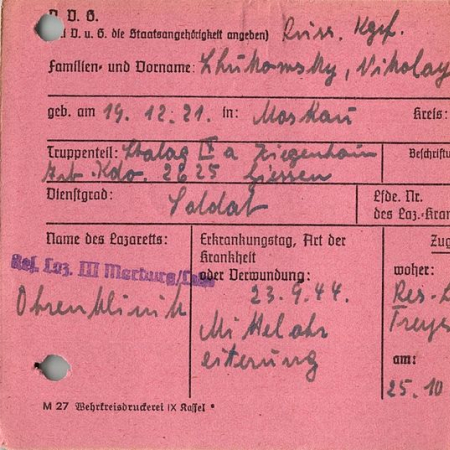 D. D. G.
(bei D. u. G. die Staatsangehörigkeit angeben) Russ. Kgf.
Familien- und Vorname: Shukowsky, Nikolay
geb. am 19. 12. 21. in: Moskau Kreis:
Truppenteil: Stalag IX a Ziegenhain Beschriftu
Arb. Kdo. 2625 Giessen
Dienstgrad: Soldat Lfde. Nr.
des Laz.-Kran
Name des Lazaretts: Erkrankungstag, Art der Krankheit oder Verwundung: Zug
Res. Laz. III Marburg/Lahn
Ohrenklinik
23. 9. 44.
Mittelohr
eiterung
woher:
Res-L
Treys
am:
25. 10
M 27 Wehrkreisdruckerei IX Kassel